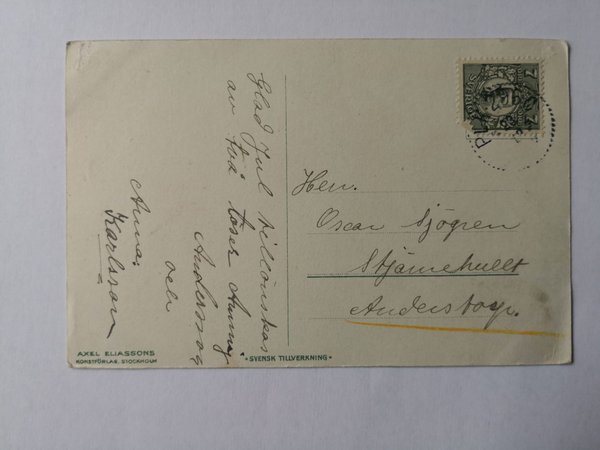 Glad Jul tillönskas
av två töser Anny
Andersson
och
Anna
Karlsson
Herr.
Oscar Sjögren
Stjärnehullt
Anderstorp.
SVERIGE
7
7
AXEL ELIASSONS
KONSTFÖRLAG, STOCKHOLM
• SVENSK TILLVERKNING •